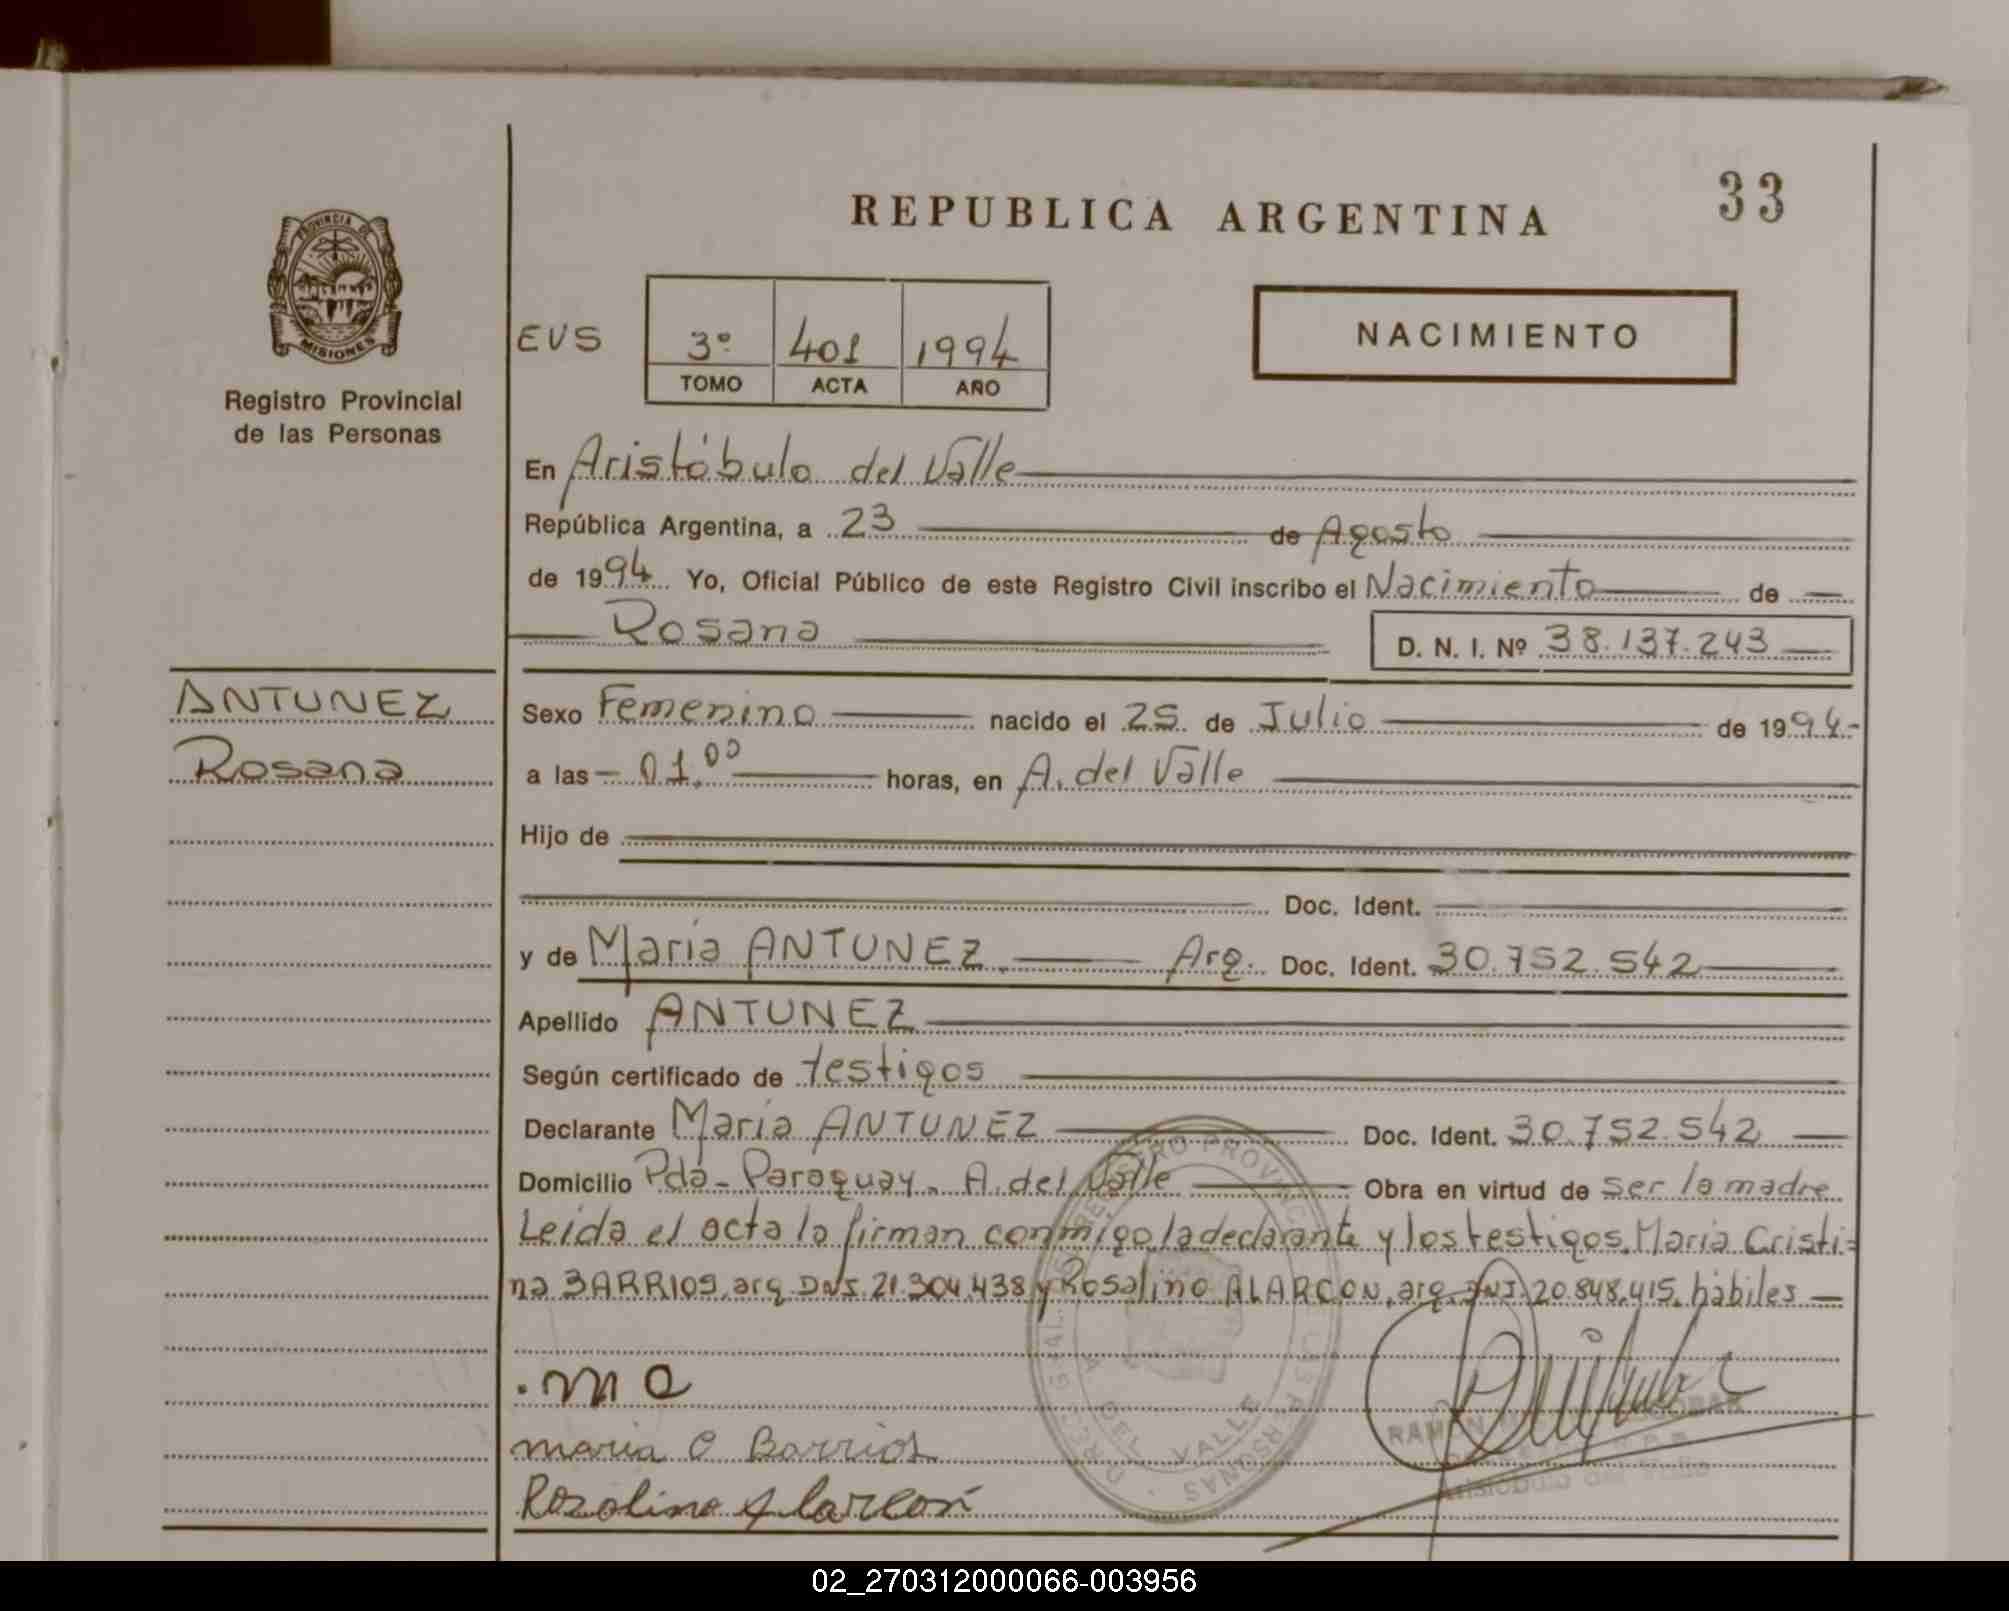 33
REPUBLICA ARGENTINA
PROVINCIA DE
MISIONES
Registro Provincial
de las Personas
EVS
3º 401 1994
TOMO ACTA AÑO
NACIMIENTO
En Aristóbulo del Valle
República Argentina, a 23 de Agosto
de 1994 Yo, Oficial Público de este Registro Civil inscribo el Nacimiento de
Rosana D. N. I. Nº 38.137.243
ANTUNEZ
Rosana
Sexo Femenino nacido el 25 de Julio de 1994.-
a las 01,00 horas, en A. del Valle
Hijo de
Doc. Ident.
y de María ANTUNEZ Arg. Doc. Ident. 30.752.542
Apellido ANTUNEZ
Según certificado de testigos
Declarante María ANTUNEZ Doc. Ident. 30.752.542
Domicilio Pdá- Paraguay. A. del Valle Obra en virtud de ser la madre
Leída el acta la firman conmigo la declarante y los testigos. María Cristi=
na BARRIOS, arg. DNI. 21.304.438 y Rosalino ALARCON, arg. DNI. 20.848.415. hábiles
. m a
maria C Barrios
Rozolino Alarcon
A. DEL VALLE
RAMON
Aristobulo del Valle
02_270312000066-003956